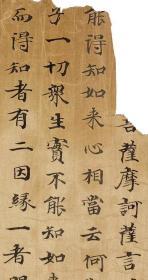 言薩摩訶薩言
能得知如来心相當云何
子一切衆生實不能知如来
而得知者有二因縁一者眼